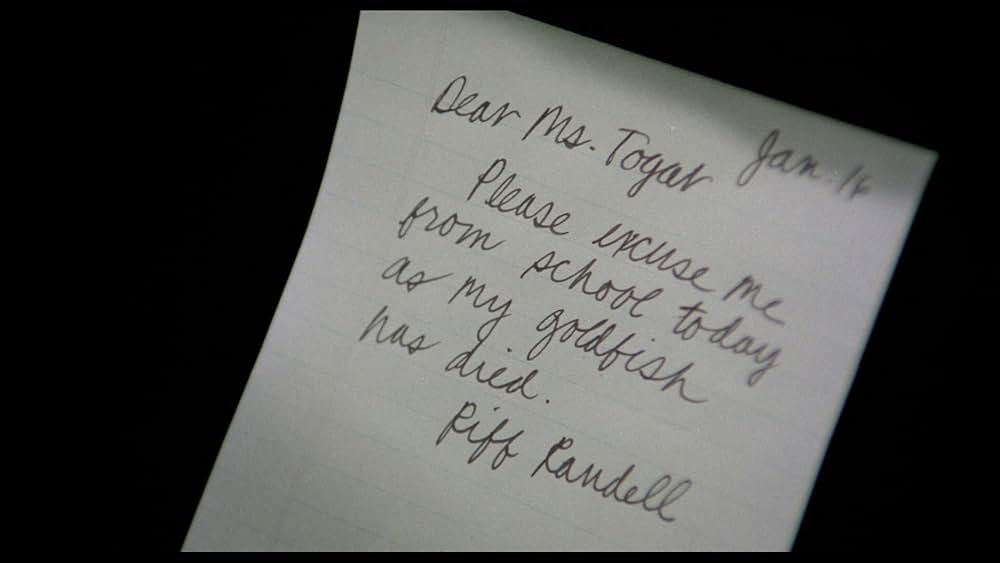 Jan. 16
Dear Ms. Togar
Please excuse me
from school today
as my goldfish
has died.
Riff Randell